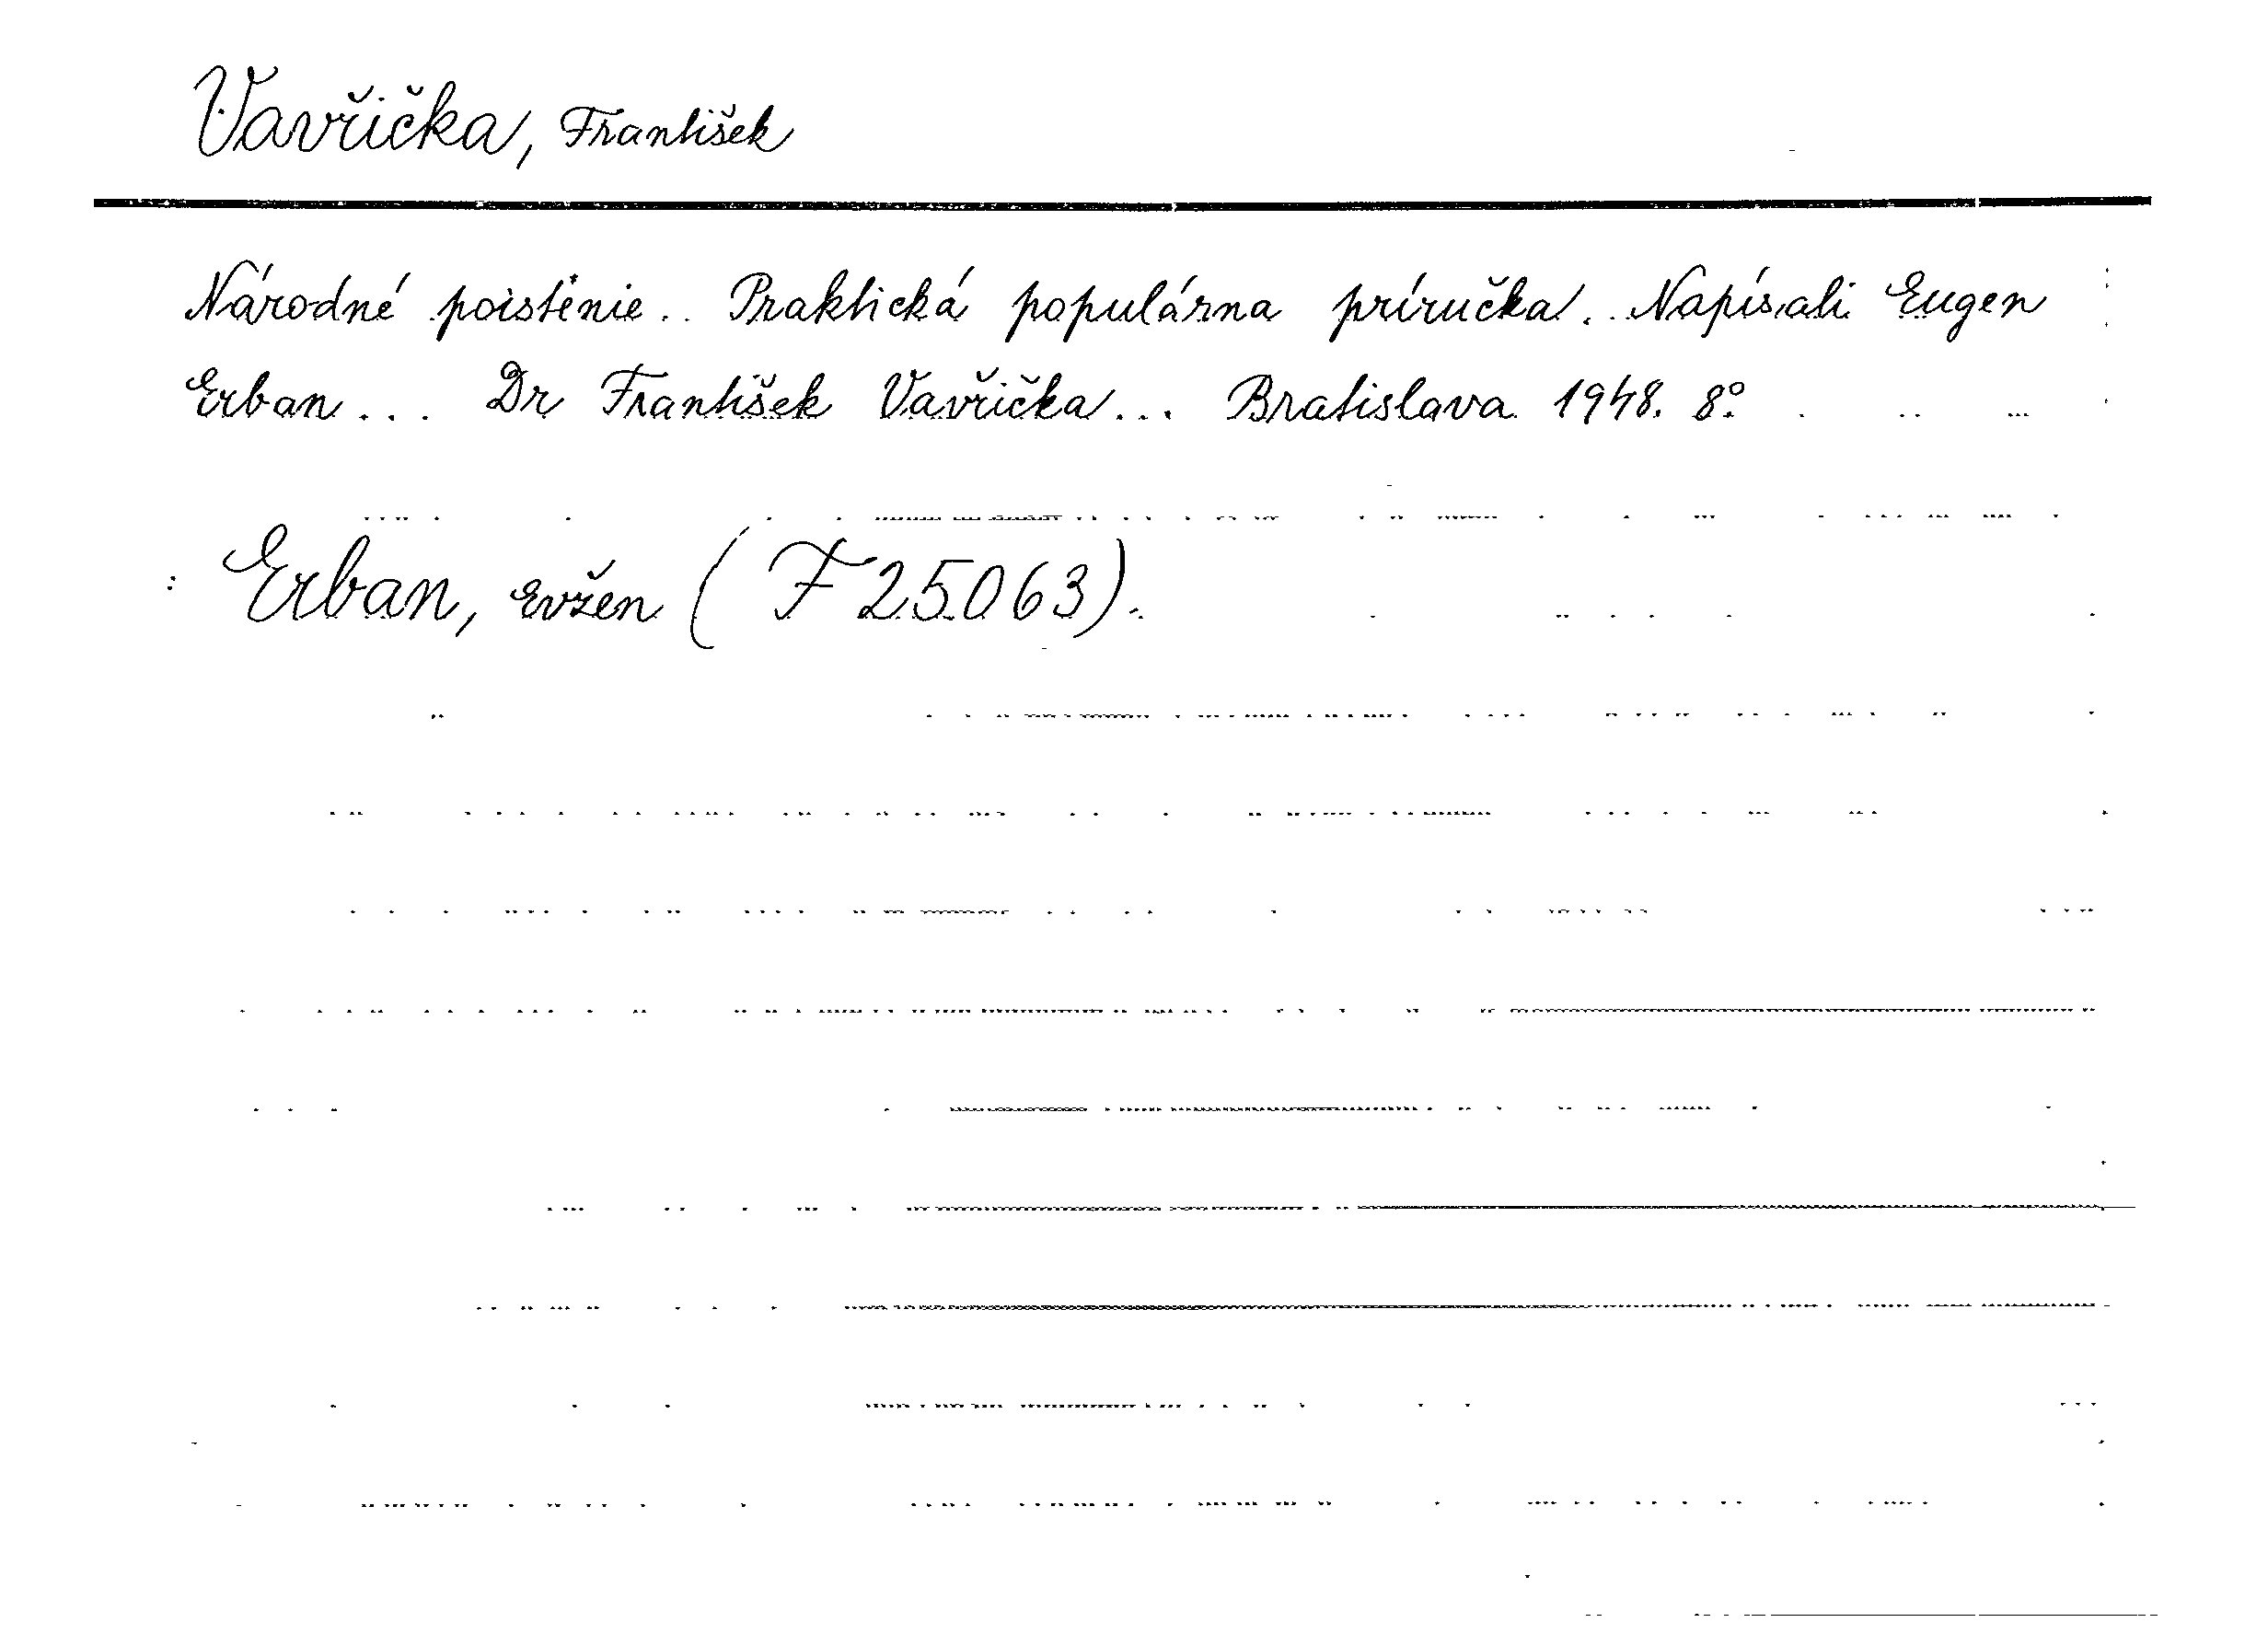 Vavřička, František
Národné poistenie. Praktická populárna príručka. Napísali Eugen
Erban... Dr František Vavřička... Bratislava 1948. 8°.
Erban, Evžen (F 25063).